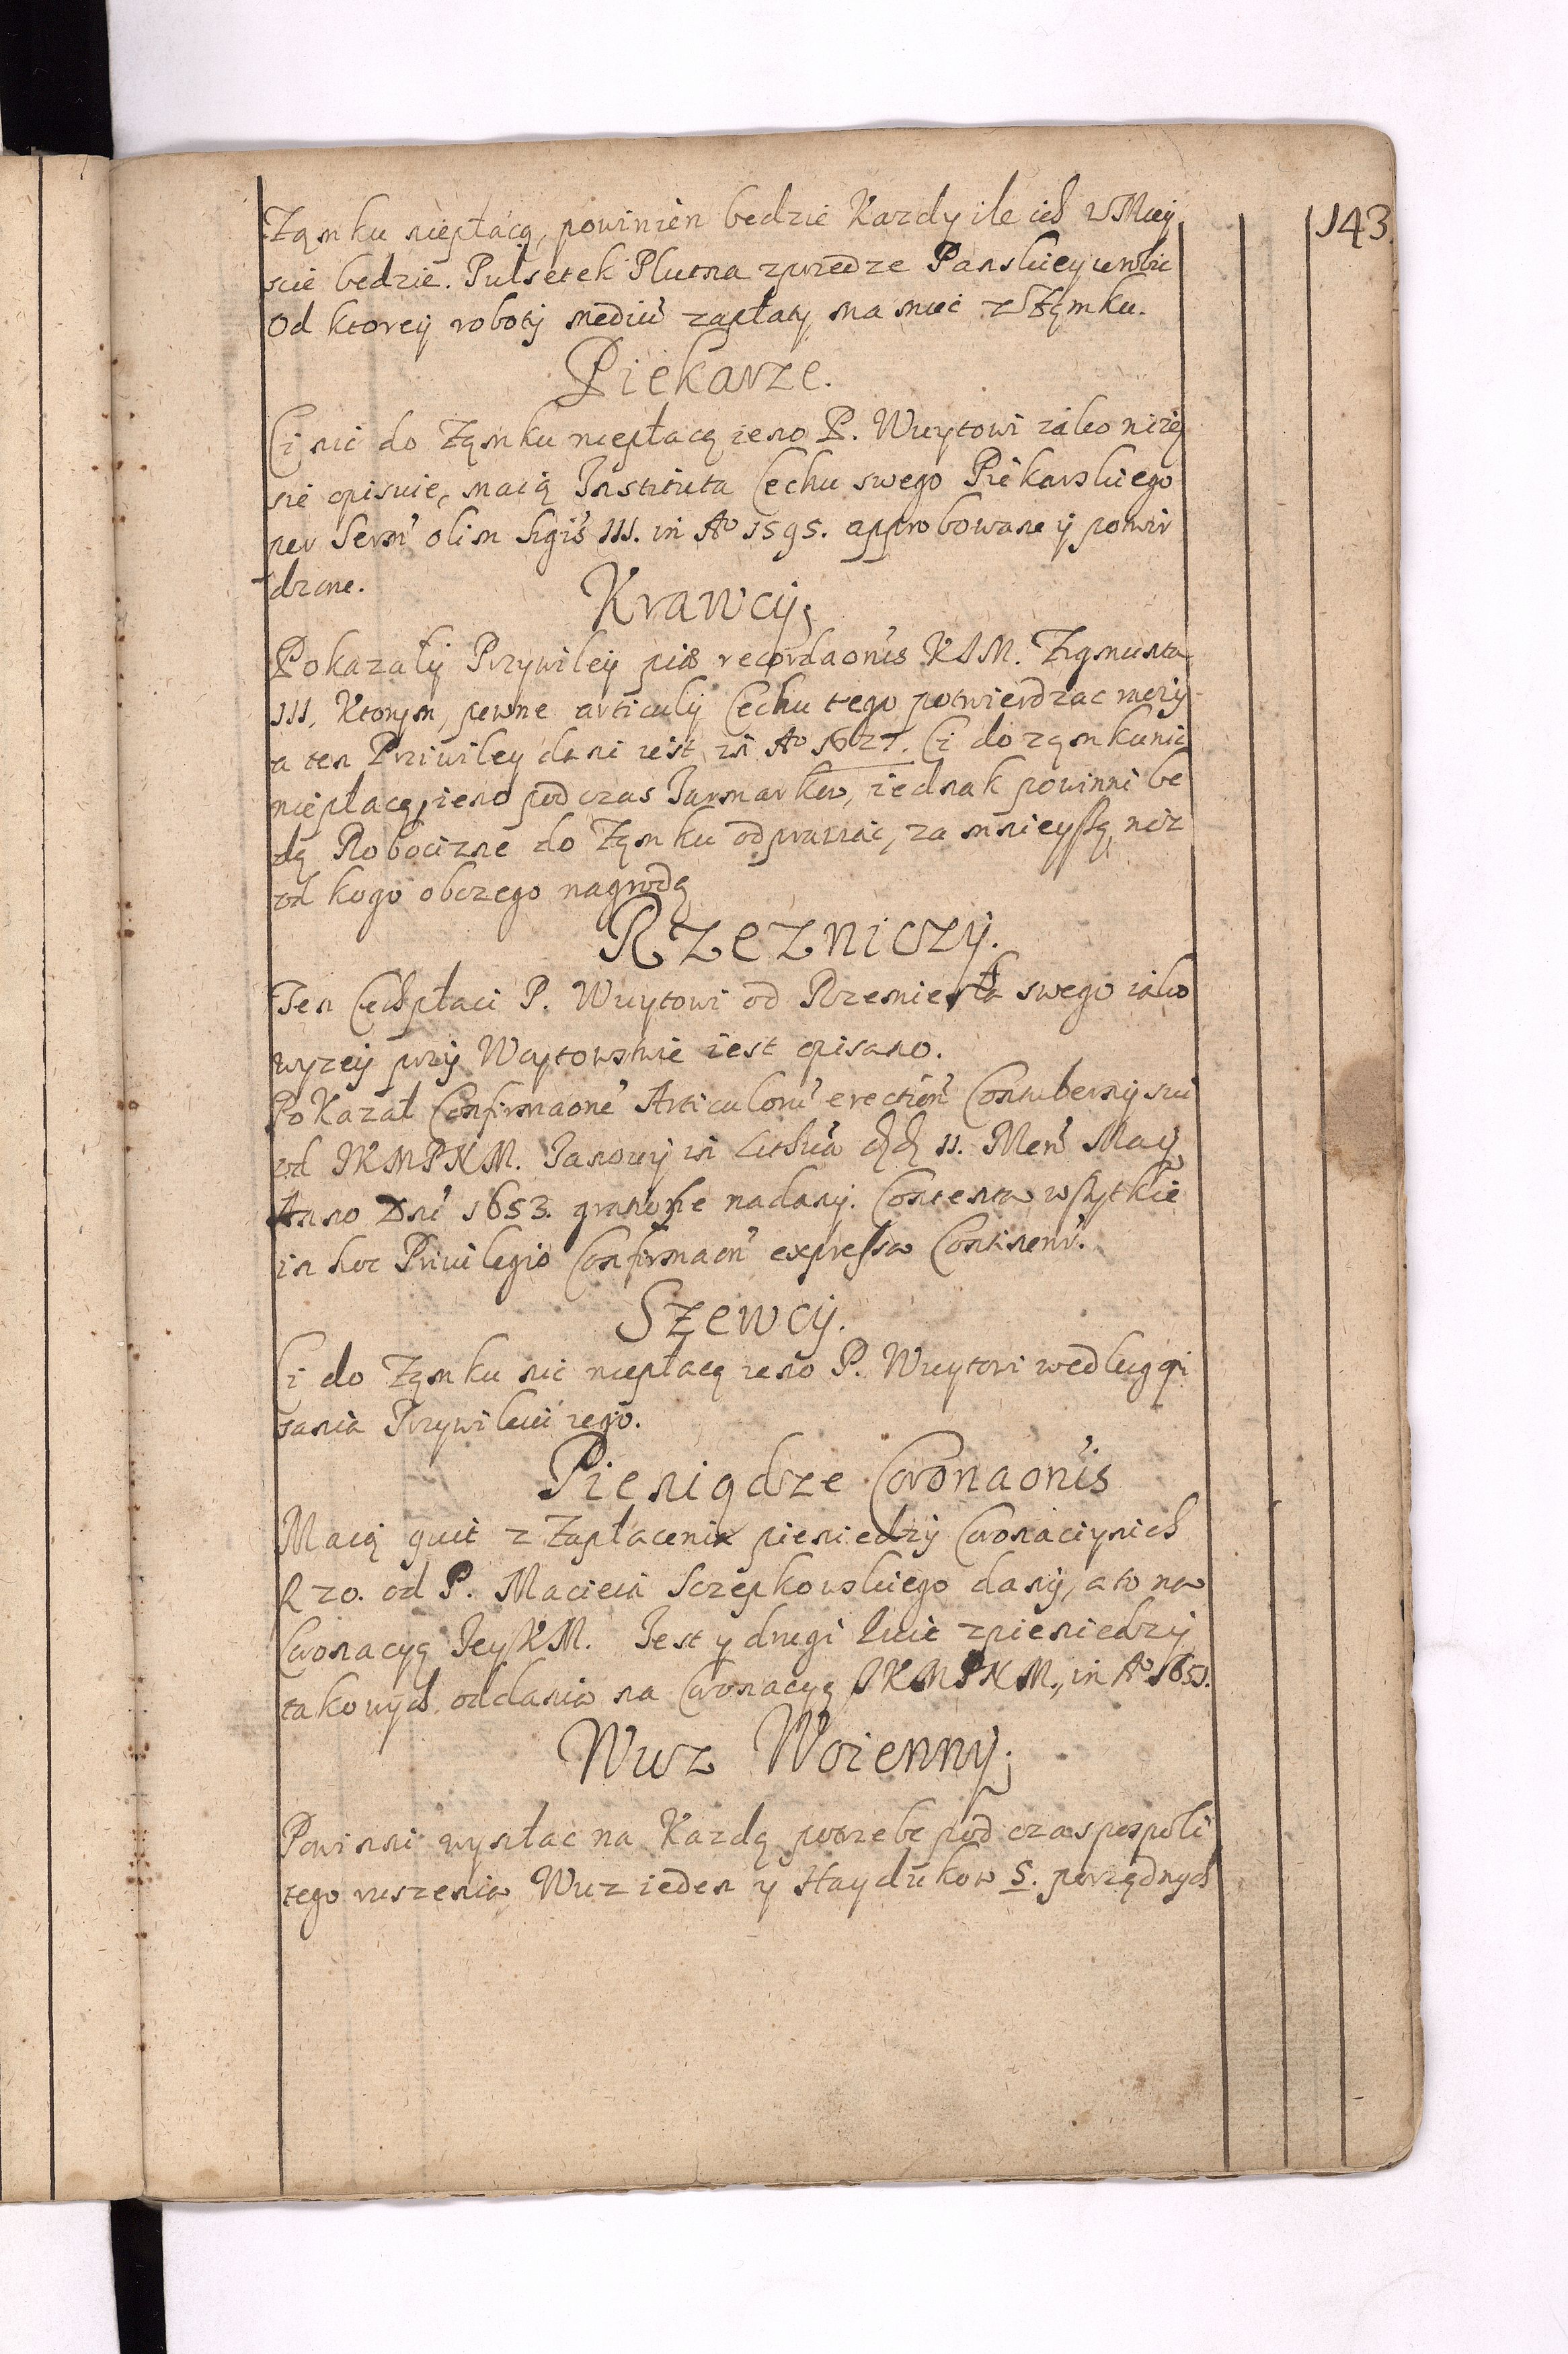 143.
Ząmku niepłacą, powinien będzie Kazdy ile ich w Miey
scie będzie. Pulsetek Plutna z przedze Panskiey urobic
Od ktorey roboty mediũ zapłaty ma miec z Ząmku.
Piekarze.
Ci nic do Ząmku niepłacą ieno P. Wuytowi iako nizey
sie opisuie, maią Instituta Cechu swego Piekarskiego
per Serm̃ olim Sigis̃ III. in Ao 1595. approbowane y potwir
dzone.
Krawcy,
Pokazały Przywiley piæ recordaonĩs KIM. Zigmunta
III, Ktorym, pewne articuly Cechu tego potwierdzac raczy
a ten Priwiley dani iest in Ao 1627. Ci do ząmku nic
niepłacą, ieno pod czas Iarmarkow, iednak powinni be
dą Robocizne do Ząmku odprawiac, za mnieyszą niz
od kogo obczego nagrodą
Rzezniczy.
Ten Cech płaci P. Wuytowi od Rzemiesła swego iako
wyzey przy Woytowstwie iest opisano.
Pokazał Confirmaonẽ Articulorũ erectioñ Contubernij sui
od IKMPNM. Janowij in Lithuã dd 11. Meñ Maij
Anno Dnĩ 1653. gratiose nadany. Contenta wszytkie
in hoc Privilegio Confirmaoñ expressa Continenr̃.
Szewcy.
Ci do Ząmku nic niepłacą ieno P. Wuytowi według opi
sania Przywileiu iego.
Pieniądze Coronaonĩs
Maią quit z Zapłacenia pieniedzy Coronacijnich
R 20. od P. Macieia Sczepkowskiego dany, a to na
Coronacyą Iey KM. Jest y drugi Quit z pieniedzy
takowych oddania na Coronacyą IKMPNM, in Ao 1651.
Wuz Woienny;
Powinni wysłac na Kazdą potrzebe pod czas pospoli
tego ruszenia Wuz ieden y Haydukow 5. porządnych